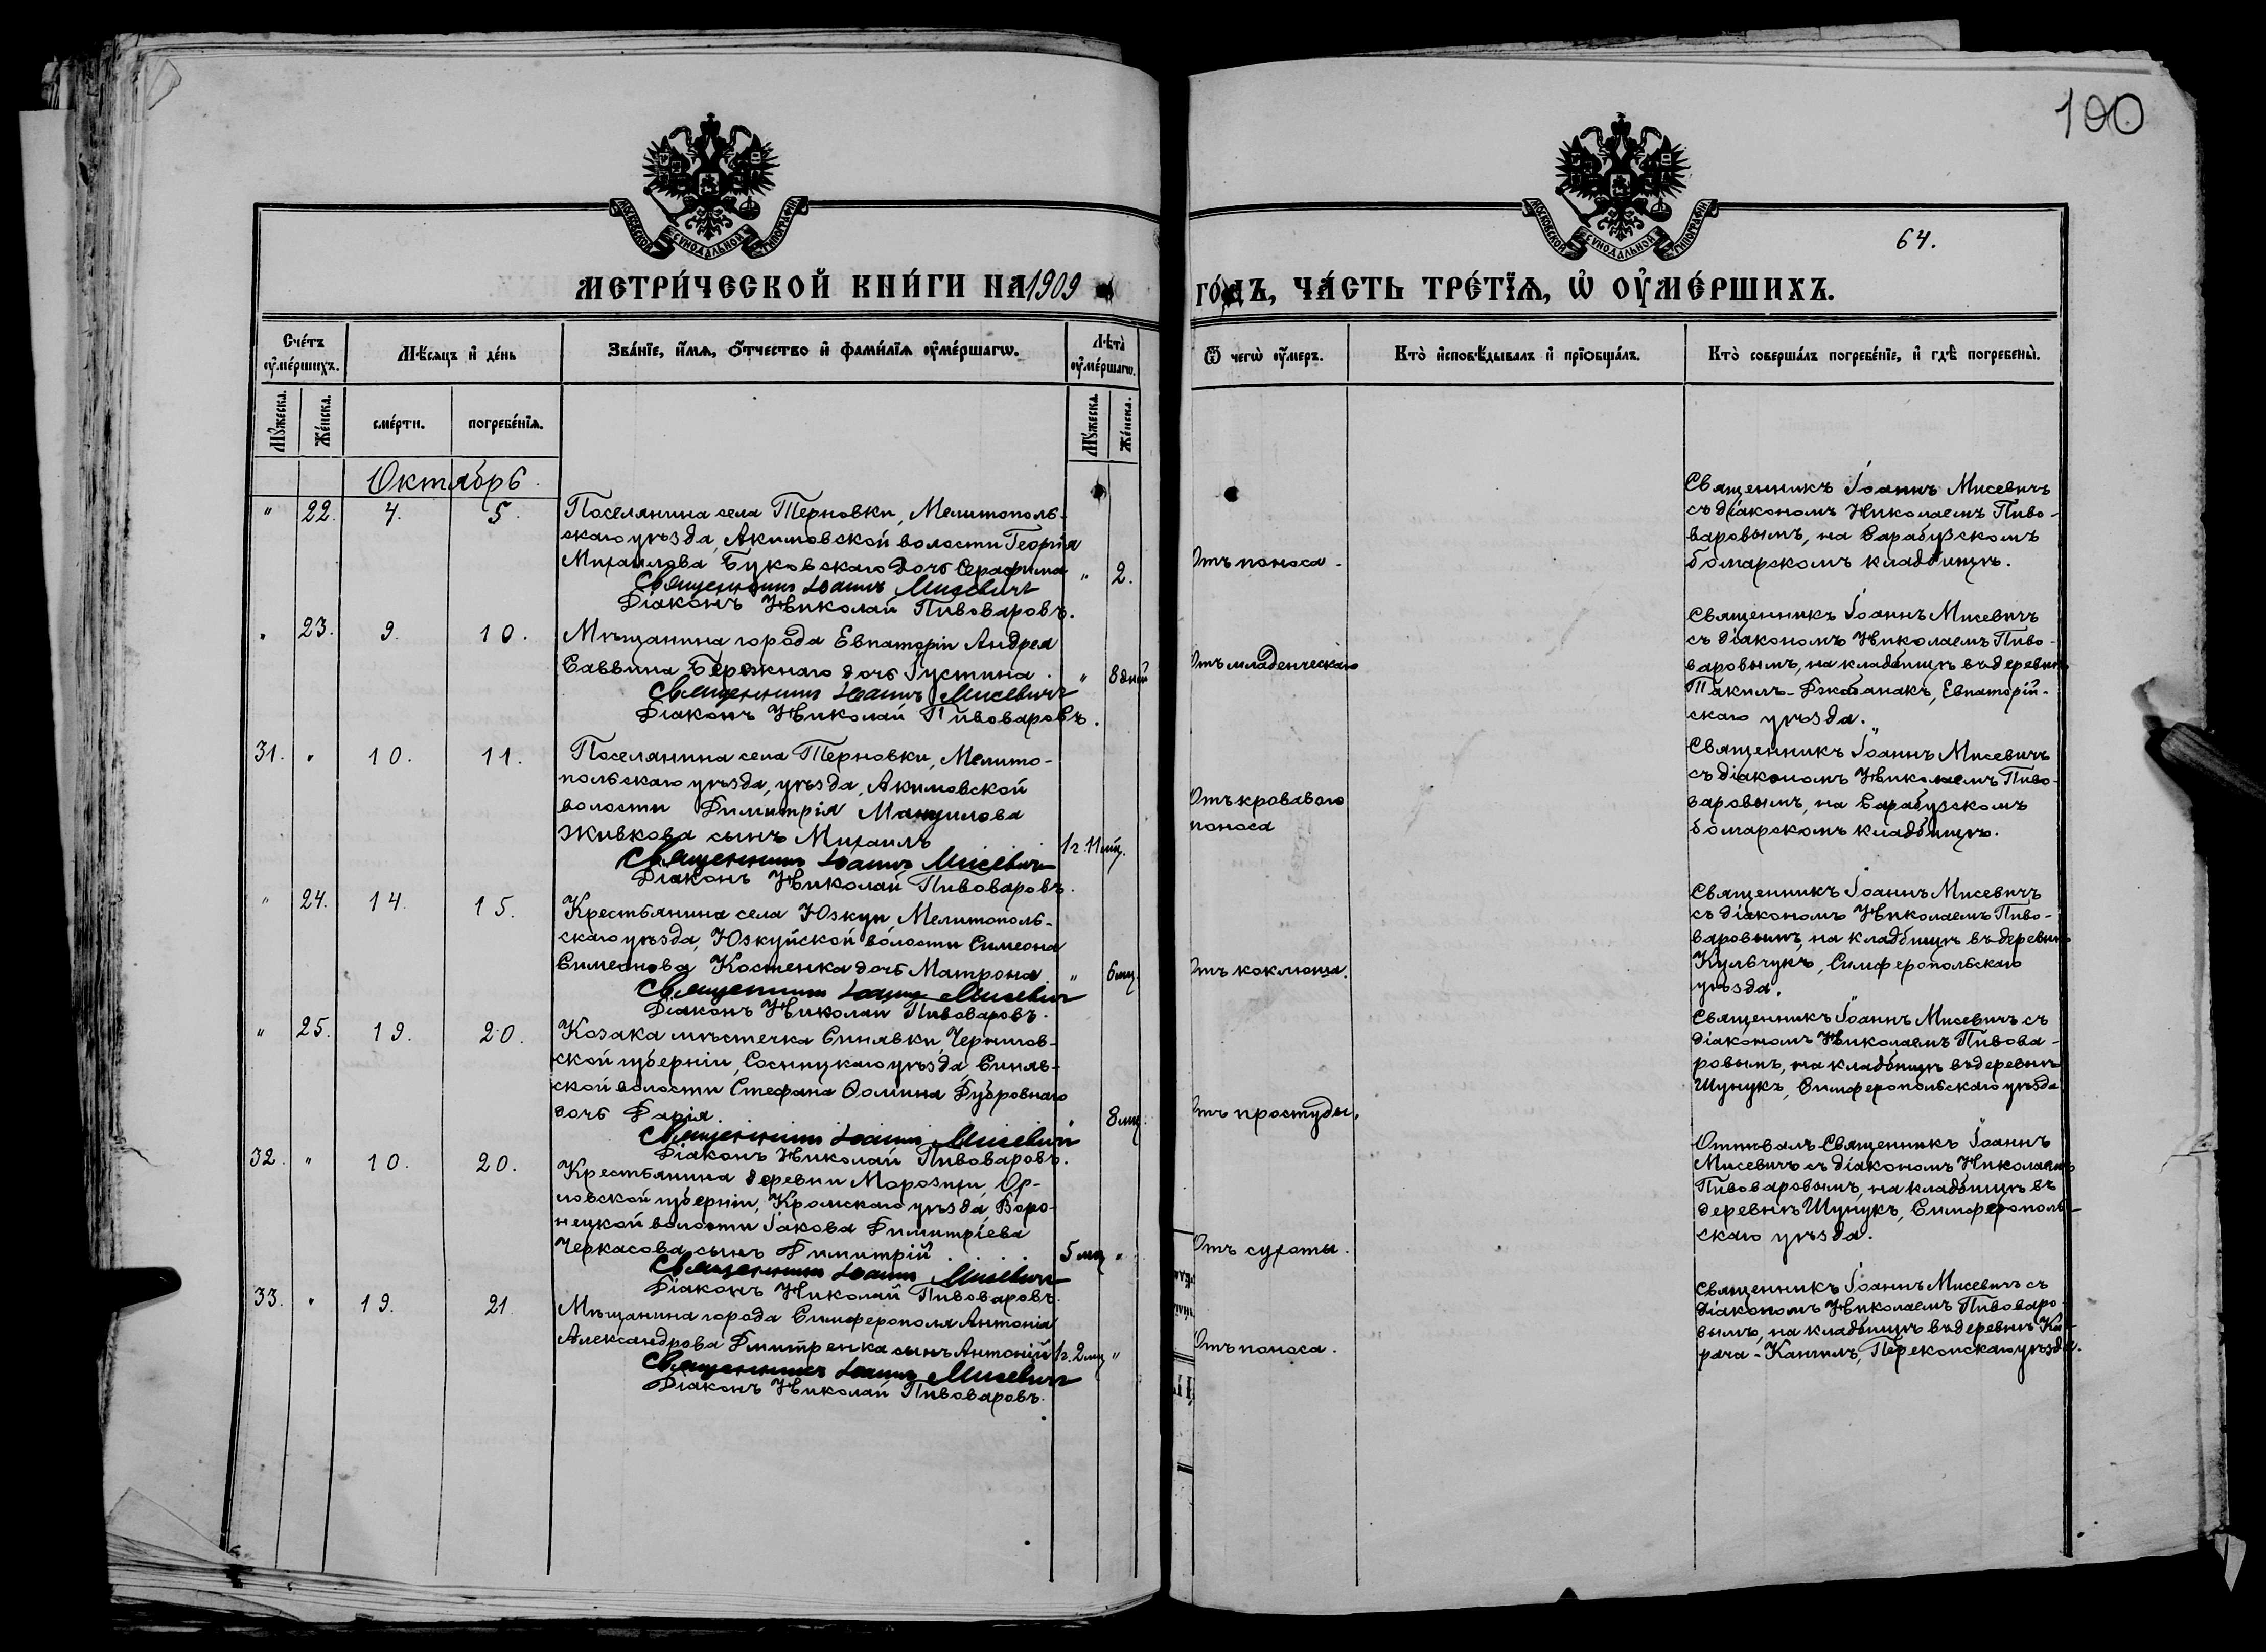 100
64.
МОСКОВСКОЙ СѴНОДАЛЬНОЙ ТИПОГРАФІИ
МОСКОВСКОЙ СѴНОДАЛЬНОЙ ТИПОГРАФІИ
МЕТРИ́ЧЕСКОЙ КНИ́ГИ НА 1909
ГО́ДЪ, ЧА́СТЬ ТРЕ́ТЇѦ, Ѡ҆ ОУ҆МЕ́РШИХЪ.
Сче́тъ оу҆ме́ршихъ.
Мѣ́сѧцъ и҆ де́нь
Зва́нїе, и҆́мѧ, ѻ҆́тчество и҆ фами́лїѧ оу҆ме́ршагѡ.
Лѣ́та оу҆ме́ршагѡ.
Ѿ чегѡ̀ оу҆́меръ.
Кто̀ и҆сповѣ́дывалъ и҆ прїѡбща́лъ.
Кто̀ соверша́лъ погребе́нїе, и҆ гдѣ̀ погребены̀.
Мꙋ́жеска.
Же́нска.
сме́рти.
погребе́нїѧ.
Мꙋ́жеска.
Же́нска.
Октябрь.
" 22. 4. 5.
Поселянина села Терновки, Мелитополь-
скаго уѣзда, Акимовской волости Георгія
Михаилова Буковскаго дочь Серафима " 2.
Священникъ Іоаннъ Мисевичъ
Діаконъ Николай Пивоваровъ.
Отъ поноса.
Священникъ Іоаннъ Мисевичъ
съ діакономъ Николаемъ Пиво-
варовымъ, на Сарабузскомъ
болгарскомъ кладбищѣ.
" 23. 9. 10.
Мѣщанина города Евпаторіи Андрея
Саввина Бережнаго дочь Іустина. " 8 дней
Священникъ Іоаннъ Мисевичъ
Діаконъ Николай Пивоваровъ.
Отъ младенческаго
Священникъ Іоаннъ Мисевичъ
съ діакономъ Николаемъ Пиво-
варовымъ, на кладбищѣ въ деревнѣ
Такилъ-Джабанакъ, Евпаторій-
скаго уѣзда.
31. " 10. 11.
Поселянина села Терновки, Мелито-
польскаго уѣзда, уѣзда, Акимовской
волости Димитрія Мануилова
Живкова сынъ Михаилъ 1 г. 11 мц.
Священникъ Іоаннъ Мисевичъ
Діаконъ Николай Пивоваровъ.
Отъ кроваваго
поноса
Священникъ Іоаннъ Мисевичъ
съ діакономъ Николаемъ Пиво-
варовымъ, на Сарабузскомъ
болгарскомъ кладбищѣ.
" 24. 14. 15.
Крестьянина села Юзкуи, Мелитополь-
скаго уѣзда, Юзкуйской волости Симеона
Симеонова Костенка дочь Матрона " 6 мц.
Священникъ Іоаннъ Мисевичъ
Діаконъ Николай Пивоваровъ.
Отъ коклюша.
Священникъ Іоаннъ Мисевичъ
съ діакономъ Николаемъ Пиво-
варовымъ, на кладбищѣ въ деревнѣ
Кульчукъ, Симферопольскаго
уѣзда.
" 25. 19. 20.
Козака мѣстечка Синявки, Чернигов-
ской губерніи, Сосницкаго уѣзда, Синяв-
ской волости Стефана Ѳомина Дубровнаго
дочь Дарія. " 8 мц.
Священникъ Іоаннъ Мисевичъ
Діаконъ Николай Пивоваровъ.
Отъ простуды.
Священникъ Іоаннъ Мисевичъ съ
діакономъ Николаемъ Пивова-
ровымъ, на кладбищѣ въ деревнѣ
Шунукъ, Симферопольскаго уѣзда
32. " 10. 20.
Крестьянина деревни Морозихи, Ор-
ловской губерніи, Кромскаго уѣзда, Воро-
нецкой волости Іакова Димитріева
Черкасова сынъ Димитрій 5 мц. "
Священникъ Іоаннъ Мисевичъ
Діаконъ Николай Пивоваровъ.
Отъ сухоты.
Отпѣвалъ Священникъ Іоаннъ
Мисевичъ съ діакономъ Николаемъ
Пивоваровымъ, на кладбищѣ въ
деревнѣ Шунукъ, Симферополь-
скаго уѣзда.
33. " 19. 21
Мѣщанина города Симферополя Антонія
Александрова Дмитренка сынъ Антоній 1 г. 2 мц "
Священникъ Іоаннъ Мисевичъ
Діаконъ Николай Пивоваровъ.
Отъ поноса.
Священникъ Іоаннъ Мисевичъ съ
діакономъ Николаемъ Пивоваро-
вымъ, на кладбищѣ въ деревнѣ Ка-
рача-Кангилъ, Перекопскаго уѣзда.